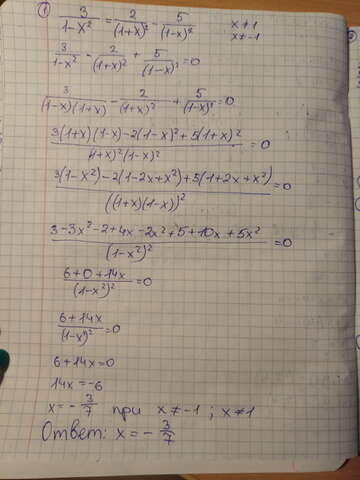 ① 3/(1-x²) = 2/(1+x)² - 5/(1-x)² x ≠ 1
x ≠ -1
3/(1-x²) - 2/(1+x)² + 5/(1-x)² = 0
3/((1-x)(1+x)) - 2/(1+x)² + 5/(1-x)² = 0
(3(1+x)(1-x)-2(1-x)²+5(1+x)²)/((1+x)²(1-x)²) = 0
(3(1-x²)-2(1-2x+x²)+5(1+2x+x²))/((1+x)(1-x))² = 0
(3-3x²-2+4x-2x²+5+10x+5x²)/(1-x²)² = 0
(6+0+14x)/(1-x²)² = 0
(6+14x)/(1-x²)² = 0
6+14x=0
14x=-6
x = -3/7 при x ≠ -1 ; x ≠ 1
Ответ: x = -3/7